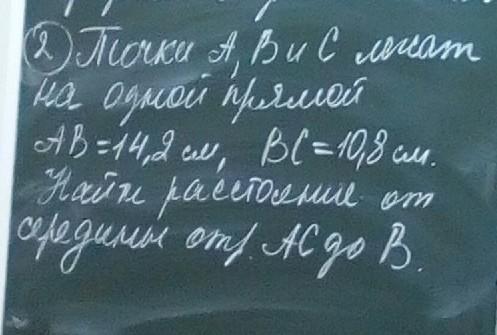 ② Точки А, В и С лежат
на одной прямой
АВ=14,2 см, ВС=10,8 см.
Найти расстояние от
середины отр. АС до В.